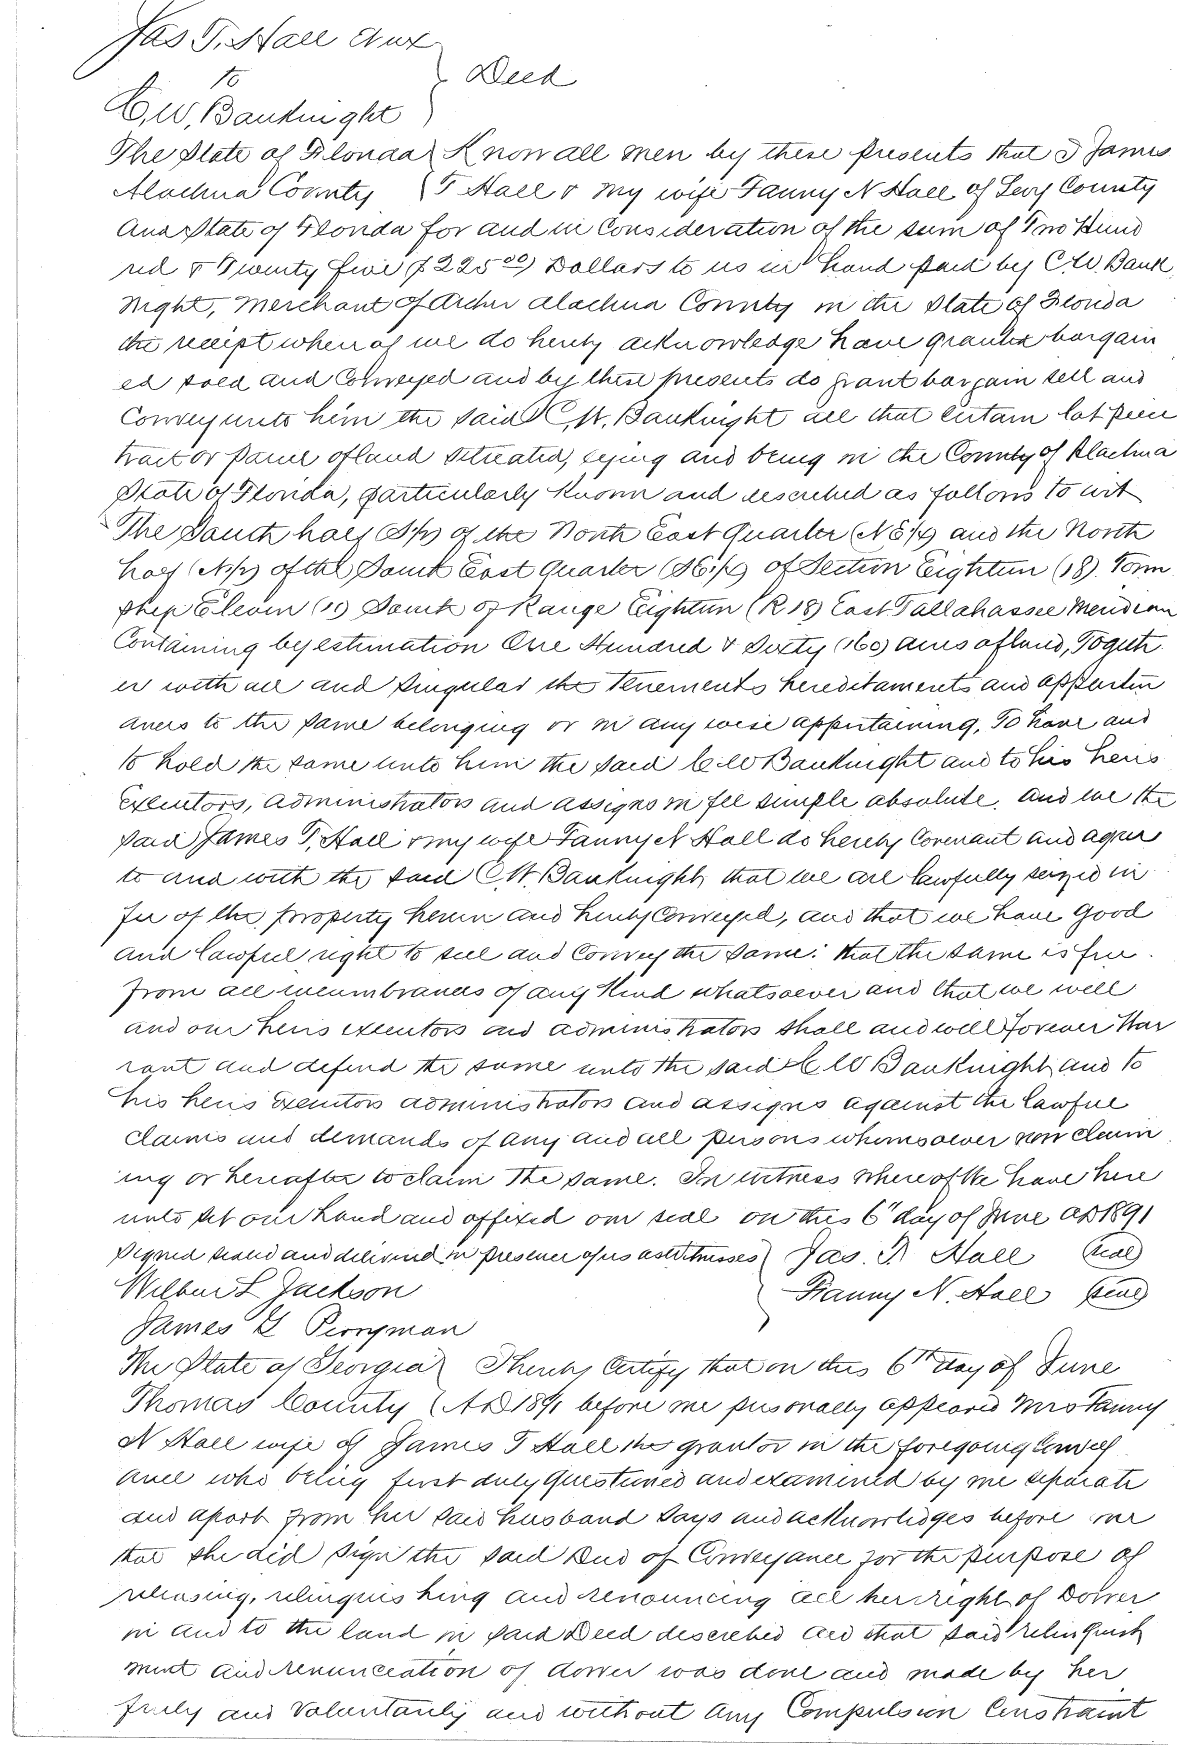 Jas T. Hall et ux
to
Deed
C. W. Bauknight
The State of Florida Know all men by these presents that I James
Alachua County T Hall & my wife Fanny N Hall of Levy County
and State of Florida for and in Consideration of the sum of Two Hund
red & Twenty five ($225 00) Dollars to us in hand paid by C. W. Bauk
night, Merchant of Archer Alachua County in the State of Florida
the receipt whereof we do hereby acknowledge have granted bargain
ed sold and Conveyed and by these presents do grant bargain sell and
Convey unto him the said C. W. Bauknight all that certain lot piece
tract or parcel of land situated, lying and being in the County of Alachua
State of Florida, particularly known and described as follows to wit
The South half (S½) of the North East Quarter (NE¼) and the North
half (N½) of the South East Quarter (SE¼) of Section Eighteen (18). Town
ship Eleven (11) South of Range Eighteen (R 18) East Tallahassee Meridian
Containing by estimation One Hundred & Sixty (160) acres of land, Togeth
er with all and singular the Tenements hereditaments and appurten
ances to the same belonging or in any wise appertaining, To have and
to hold the same unto him the said C W Bauknight and to his heirs
Executors, administrators and assigns in fee simple absolute. and we the
said James T. Hall & my wife Fanny N Hall do hereby Covenant and agree
to and with the said C. W. Bauknight that we are lawfully seized in
fee of the property herein and hereby Conveyed, and that we have good
and lawful right to sell and Convey the same: that the same is free
from all incumbrances of any kind whatsoever and that we will
and our heirs executors and administrators shall and will forever War
rant and defend the same unto the said C W Bauknight and to
his heirs Executors administrators and assigns against the lawful
claims and demands of any and all persons whomsoever now claim
ing or hereafter to claim the same. In witness whereof We have here
unto set our hand and affixed our seal on this 6" day of June AD 1891
Signed sealed and delivered in presence of us as Witnesses Jas. T. Hall (seal)
Wilbur L Jackson Fanny N. Hall (seal)
James G Perryman
The State of Georgia I hereby Certify that on this 6th day of June
Thomas County AD 1891 before me personally appeared Mrs Fanny
N Hall wife of James T Hall the grantor in the foregoing Convey
ance who being first duly questioned and examined by me separate
and apart from her said husband says and acknowledges before me
that she did sign the said Deed of Conveyance for the purpose of
releasing, relinquishing and renouncing all her right of Dower
in and to the land in said Deed described and that said relinquish
ment and renunciation of dower was done and made by her
freely and voluntarily and without any Compulsion Constraint